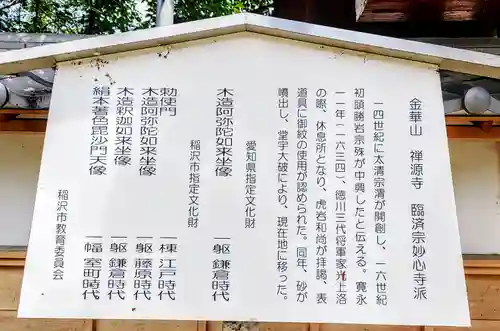 金華山　禅源寺　臨済宗妙心寺派
一四世紀に太清宗渭が開創し、一六世紀
初頭勝岩宗殊が中興したと伝える。寛永
一一年（一六三四）、徳川三代将軍家光上洛
の際、休息所となり、虎岩和尚が拝謁、表
道具に御紋の使用が認められた。同年、砂が
噴出し、堂宇大破により、現在地に移った。
愛知県指定文化財
木造阿弥陀如来坐像　一躯　鎌倉時代
稲沢市指定文化財
勅使門　一棟　江戸時代
木造阿弥陀如来坐像　一躯　藤原時代
木造釈迦如来坐像　一躯　鎌倉時代
絹本著色毘沙門天像　一幅　室町時代
稲沢市教育委員会